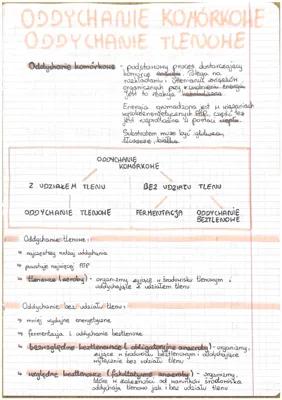 ODDYCHANIE KOMÓRKOWE
ODDYCHANIE TLENOWE
Oddychanie komórkowe - podstawowy proces dostarczający
komórce energię. Polega na
rozkładaniu i utlenianiu związków
organicznych przy uwolnieniu energii
jest to reakcja
Energia gromadzona jest w wiązaniach
wysokoenergetycznych ATP, część też
jest rozpraszana w postaci ciepła.
Substratem może być glukoza,
tłuszcze, białka
ODDYCHANIE
KOMÓRKOWE
Z UDZIAŁEM TLENU
BEZ UDZIAŁU TLENU
ODDYCHANIE TLENOWE
FERMENTACJA
ODDYCHANIE
BEZTLENOWE
Oddychanie tlenowe:
najczęstszy rodzaj oddychania
powstaje najwięcej ATP
tlenowce (aeroby) - organizmy żyjące w środowisku tlenowym i
oddychające z udziałem tlenu
Oddychanie bez udziału tlenu:
mniej wydajne energetyczne
fermentacja i oddychanie beztlenowe
bezwzględne beztlenowce (obligatoryjne anaeroby) - organizmy,
żyjące w środowisku beztlenowym i oddychające
wyłącznie bez udziału tlenu
względne beztlenowce (fakultatywne anaeroby) - organizmy,
które w zależności od warunków środowiska
oddychają tlenowo jak i bez udziału tlenu